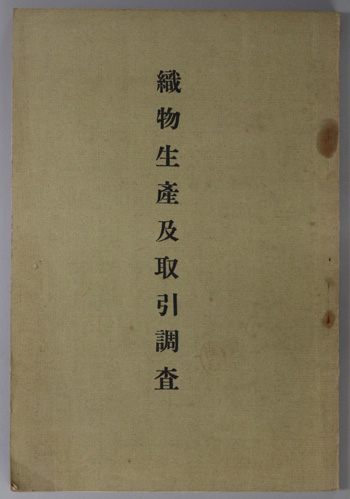 織物生産及取引調査